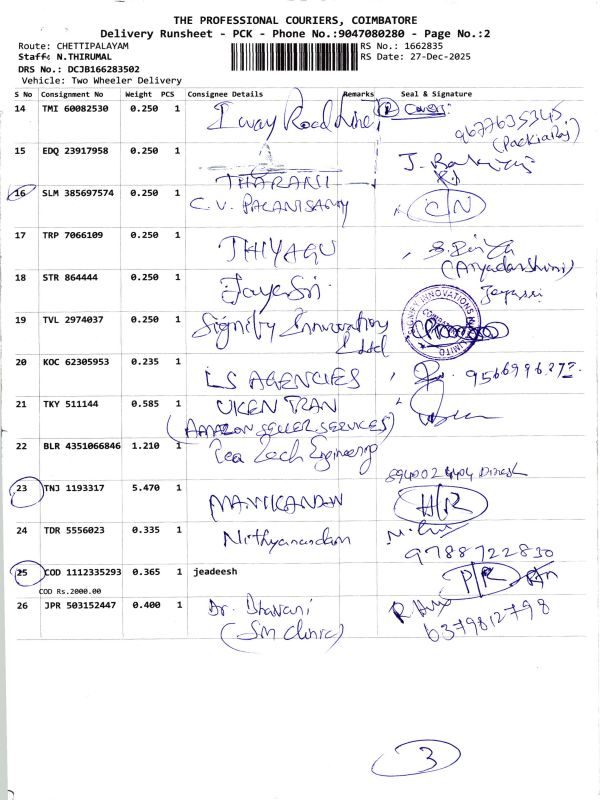 THE PROFESSIONAL COURIERS, COIMBATORE
Delivery Runsheet - PCK - Phone No.:9047080280 - Page No.:2
Route: CHETTIPALAYAM RS No.: 1662835
Staff: N.THIRUMAL RS Date: 27-Dec-2025
DRS No.: DCJB166283502
Vehicle: Two Wheeler Delivery
S No Consignment No Weight PCS Consignee Details Remarks Seal & Signature
14 TMI 60082530 0.250 1 I way Road Line, (R) Covers:
9677635345
(Packiaraj)
15 EDQ 23917958 0.250 1 THARANI
16 SLM 385697574 0.250 1 C.V. PALANISAMY CN
17 TRP 7066109 0.250 1 THIYAGU
18 STR 864444 0.250 1 JayaSri
19 TVL 2974037 0.250 1 Signify Innovation
Ltd
20 KOC 62305953 0.235 1 LS AGENCIES
21 TKY 511144 0.585 1 UKEN TRAN
(AMAZON SELLER SERVICES)
22 BLR 4351066846 1.210 1 Tea Tech Engineering
23 TNJ 1193317 5.470 1 MANIKANDAN H/R
24 TDR 5556023 0.335 1 Nithyanandam
9788722830
25 COD 1112335293 0.365 1 jeadeesh P/R
COD Rs.2000.00
26 JPR 503152447 0.400 1 Dr. Bhavani
(Sm clinic) 6379812798
3